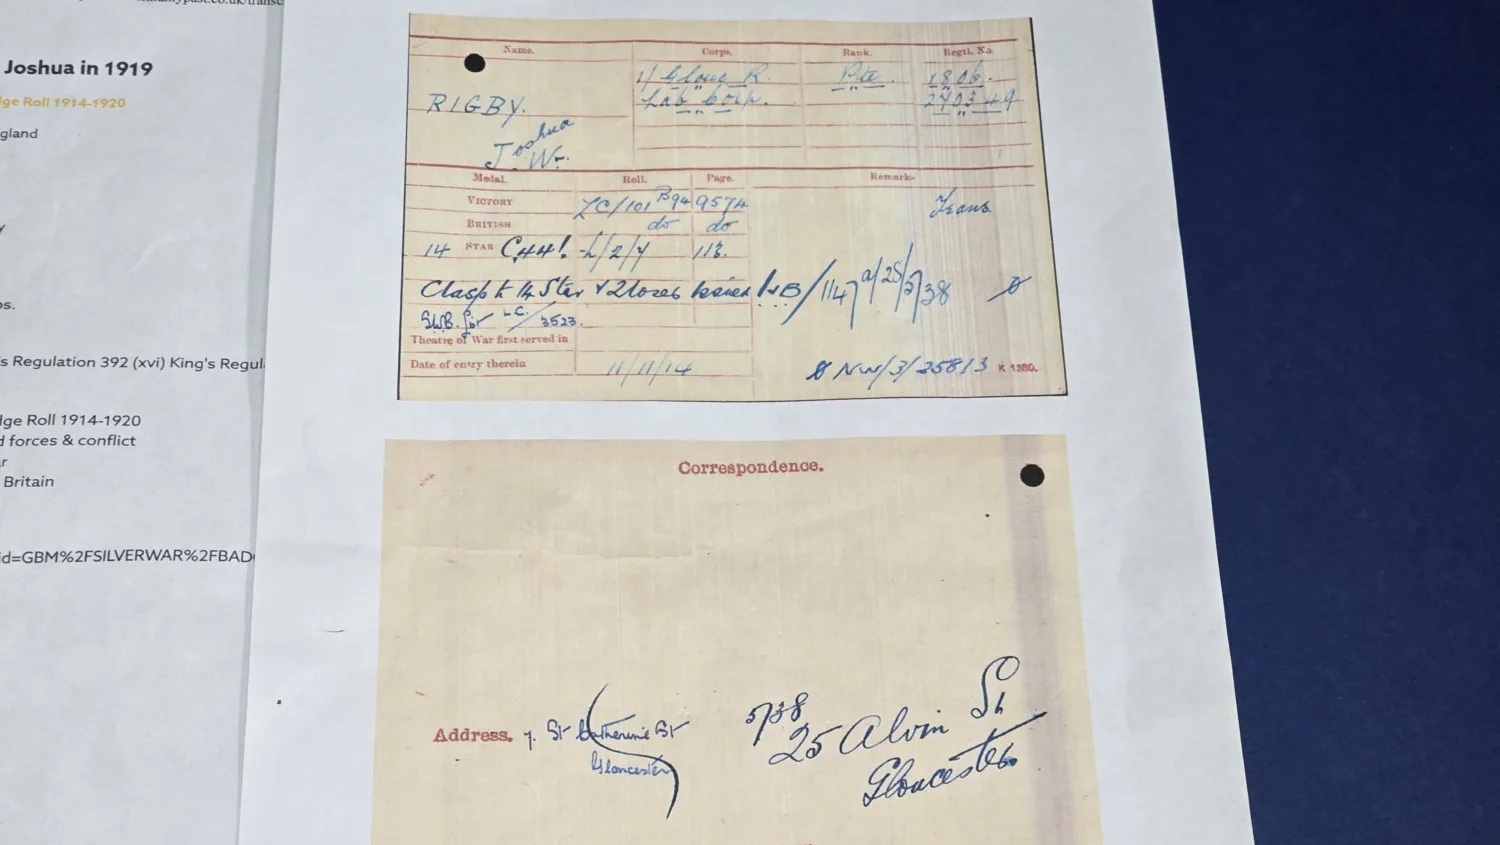 Joshua in 1919
ge Roll 1914-1920
gland
s Regulation 392 (xvi) King's Regul
ge Roll 1914-1920
d forces & conflict
r
Britain
id=GBM%2FSILVERWAR%2FBAD
Name. Corps. Rank. Regtl. No.
1/ Glouc R. Pte. 1806.
RIGBY. Lab Corp. 270349
Joshua
W.
Medal. Roll. Page. Remark-
VICTORY LC/101 B94 9574 Trans.
BRITISH do do
14 STAR 113.
Clasp to 14 Star & 2 Roses Issued /1147 a/25/5/38
S.W.B. list LC/3523.
Theatre of War first served in
Date of entry therein 11/11/14 NW/3/25813 K 1380.
Correspondence.
Address. 7. St Catherine St
Gloucester
5/38
25 Alvin St
Gloucester